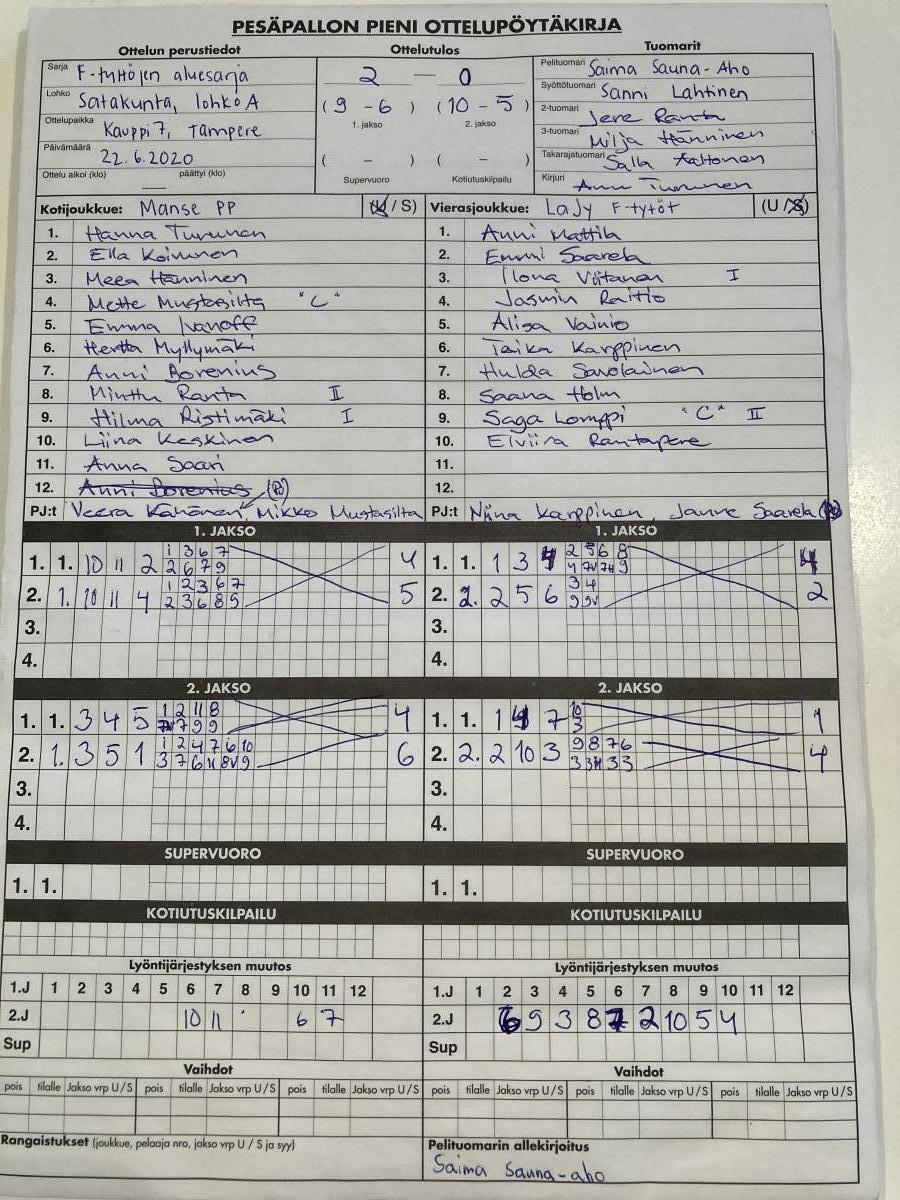 PESÄPALLON PIENI OTTELUPÖYTÄKIRJA
Ottelun perustiedot
Ottelutulos
Tuomarit
Sarja F-tyttöjen aluesarja
Lohko Satakunta, lohko A
Ottelupaikka Kauppi 7, Tampere
Päivämäärä 22.6.2020
Ottelu alkoi (klo) — päättyi (klo)
2 — 0
( 9 - 6 ) ( 10 - 5 )
1. jakso 2. jakso
( - ) ( - )
Supervuoro Kotiutuskilpailu
Pelituomari Saima Sauna-Aho
Syöttötuomari Sanni Lahtinen
2-tuomari Jere Ranta
3-tuomari Milja Hänninen
Takarajatuomari Salla Aaltonen
Kirjuri Anu Turunen
Kotijoukkue: Manse PP (U / S)
1. Hanna Turunen
2. Ella Koivunen
3. Meea Hänninen
4. Mette Mustasilta "C"
5. Emma Ivanoff
6. Hertta Myllymäki
7. Anni Borenius
8. Minttu Ranta II
9. Hilma Ristimäki I
10. Liina Keskinen
11. Anna Saari
12. Anni Borenius
PJ:t Veera Kähönen, Mikko Mustasilta
Vierasjoukkue: LaJy F-tytöt (U / S)
1. Anni Mattila
2. Emmi Saarela
3. Ilona Viitanen I
4. Jasmin Raitio
5. Alisa Vainio
6. Taika Karppinen
7. Hulda Savolainen
8. Saana Holm
9. Saga Lomppi "C" II
10. Elviira Rantapere
11.
12.
PJ:t Niina Karppinen, Janne Saarela
1. JAKSO
1. 1. 10 11 2 1 3 6 7 4
2 6 7 9
2. 1. 10 11 4 1 2 3 6 7 5
2 3 6 8 9
3.
4.
1. JAKSO
1. 1. 1 3 4 2 5 6 8 4
2. 2. 2 5 6 3 4 2
3.
4.
2. JAKSO
1. 1. 3 4 5 1 2 11 8 4
7 9 9
2. 1. 3 5 1 1 2 4 7 6 10 6
3.
4.
2. JAKSO
1. 1. 1 4 7 10 1
3
2. 2. 2 10 3 9 8 7 6 4
3.
4.
SUPERVUORO
1. 1.
SUPERVUORO
1. 1.
KOTIUTUSKILPAILU
KOTIUTUSKILPAILU
Lyöntijärjestyksen muutos
1.J 1 2 3 4 5 6 7 8 9 10 11 12
2.J 10 11 6 7
Sup
Lyöntijärjestyksen muutos
1.J 1 2 3 4 5 6 7 8 9 10 11 12
2.J 6 9 3 8 7 2 10 5 4
Sup
Vaihdot
pois tilalle Jakso vrp U / S pois tilalle Jakso vrp U / S pois tilalle Jakso vrp U / S
Vaihdot
pois tilalle Jakso vrp U / S pois tilalle Jakso vrp U / S pois tilalle Jakso vrp U / S
Rangaistukset (joukkue, pelaaja nro, jakso vrp U / S ja syy)
Pelituomarin allekirjoitus
Saima Sauna-aho